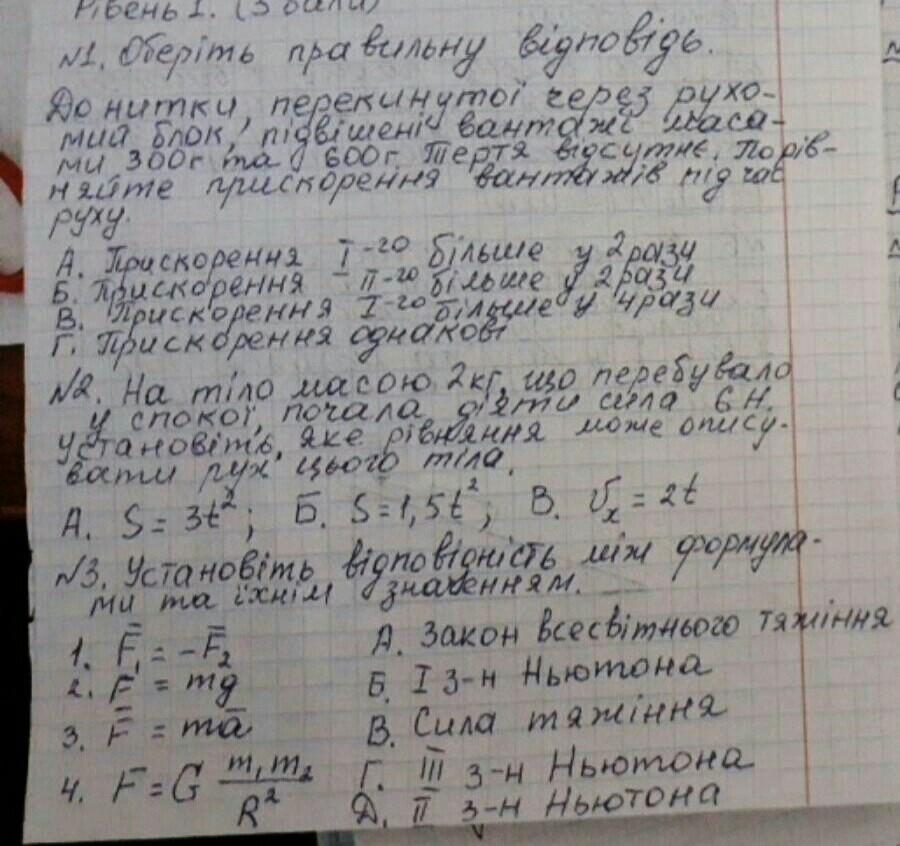 Рівень 1. (3 бали)
№1. Оберіть правильну відповідь.
До нитки, перекинутої через рухо-
мий блок, підвішені вантажі маса-
ми 300г та 600г. Тертя відсутнє. Порів-
няйте прискорення вантажів під час
руху.
А. Прискорення I-го більше у 2 рази
Б. Прискорення II-го більше у 2 рази
В. Прискорення I-го більше у 4 рази
Г. Прискорення однакові
№2. На тіло масою 2кг, що перебувало
у спокої, почала діяти сила 6 Н.
Установіть, яке рівняння може опису-
вати рух цього тіла.
А. S = 3t²; Б. S = 1,5t²; В. υₓ = 2t
№3. Установіть відповідність між формула-
ми та їхнім значенням.
1. F̄₁ = -F̄₂ А. Закон всесвітнього тяжіння
2. F̄ = mg Б. I з-н Ньютона
3. F̄ = mā В. Сила тяжіння
4. F = G m₁m₂/R² Г. III з-н Ньютона
Д. II з-н Ньютона